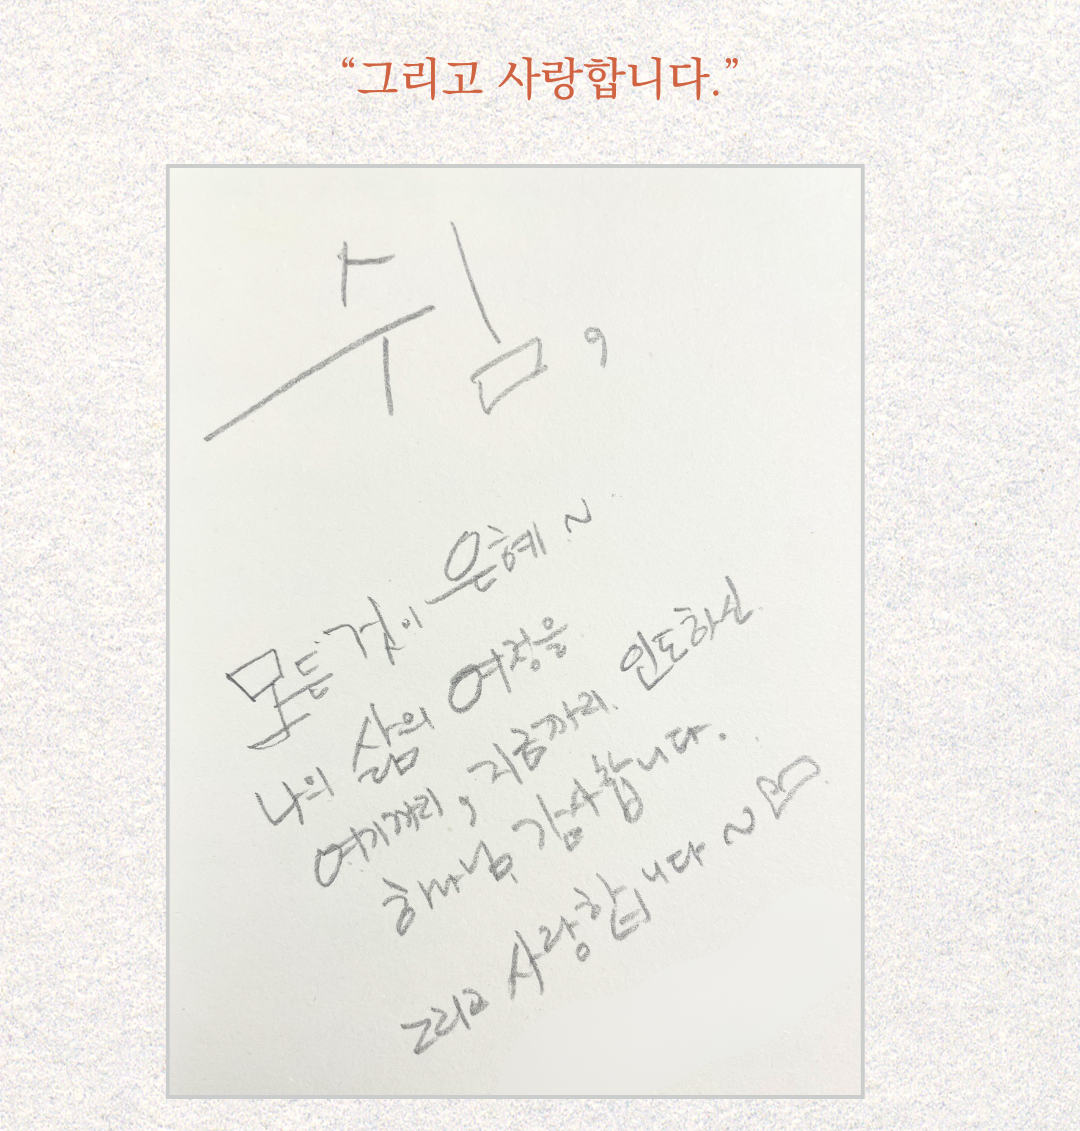 “그리고 사랑합니다.”
쉼,
모든 것이 은혜 ~
나의 삶의 여정을
여기까지, 지금까지 인도하신
하나님 감사합니다.
그리고 사랑합니다 ~ ♡